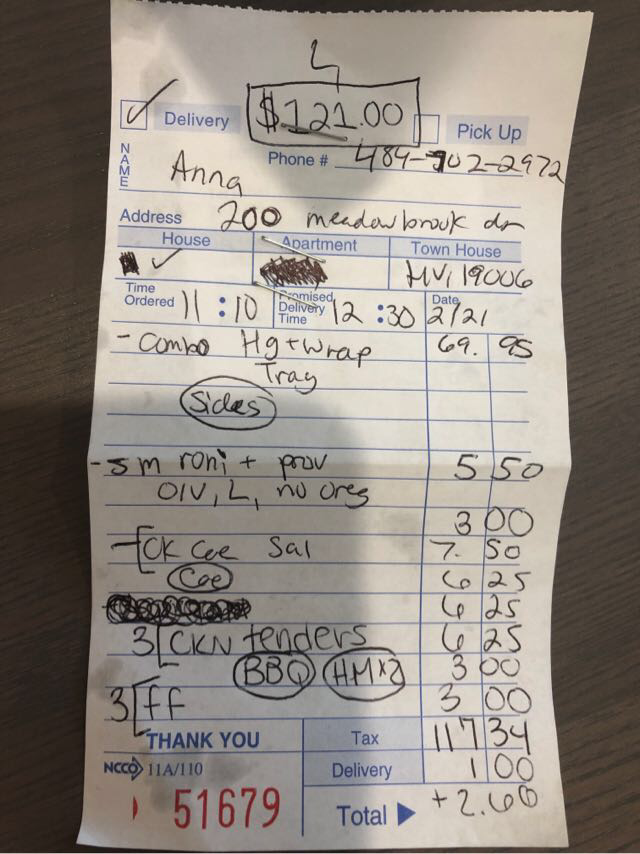 $121.00
Delivery Pick Up
NAME Anna Phone # 484-702-2972
Address 200 meadowbrook dr
House Apartment Town House
HV, 19006
Time Ordered 11:10 Promised Delivery Time 12:30 Date 2/21
- Combo Hg + wrap 69.95
Tray
Sides
- sm roni + prov 5 50
OIV, L, no oreg
3 00
CK Cae Sal 7.50
Cae 6 25
6 25
3 CKN tenders 6 25
BBQ HM x2 3 00
3 ff 3 00
THANK YOU Tax 117 34
NCCO 11A/110 Delivery 1 00
51679 Total +2.60